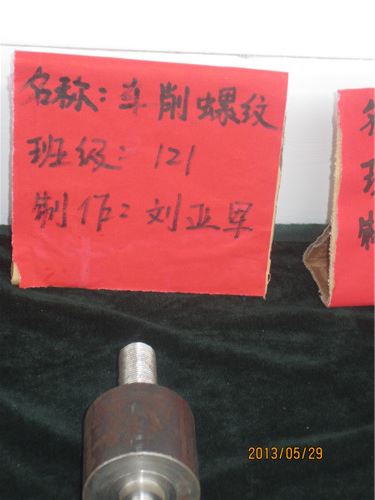 名称：车削螺纹
班级：121
制作：刘亚军
2013/05/29